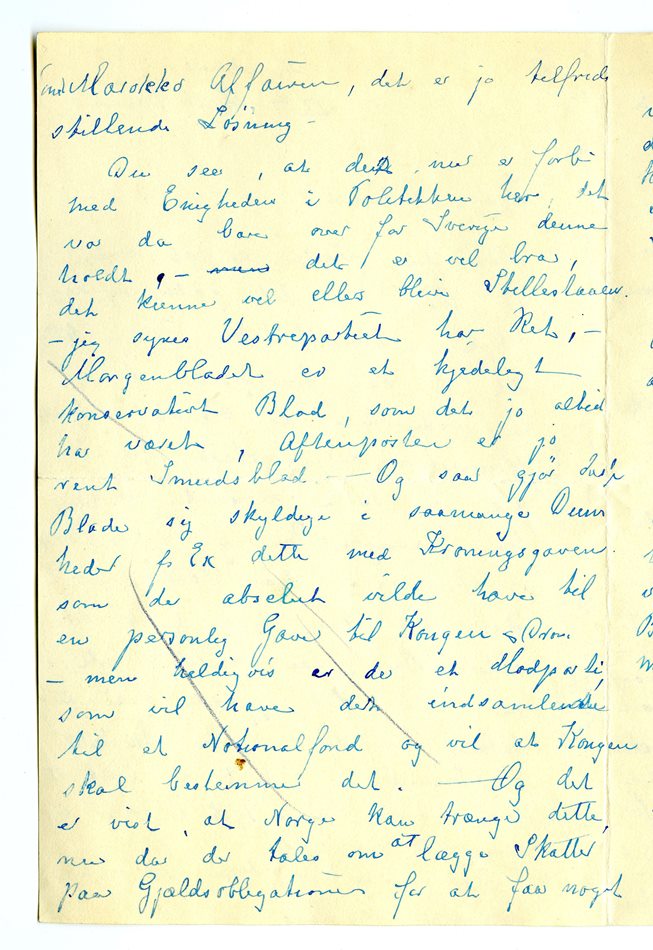 Marokko Affairen, det er jo tilfreds
stillende Løsning –
Du seer, at det nu er forbi
med Enigheden i Politikken her, det
var da bare over for Sverige denne
holdt, – men det er vel bra,
det kunne vel elles blive Stillestaaen.
– jeg synes Venstrepartiet har Ret, –
Morgenbladet er et kjedeligt
konservativt Blad, som det jo altid
har været, Aftenposten er jo
rent Smudsblad. – Og saa gjør
Blade sig skyldige i saamange Dum
heder f Ex dette med Kroningsgaven.
som de absolut vilde have til
en personlig Gave til Kongen & Dron.
– men heldigvis er de et Modparti,
som vil have det indsamlende
til et Nationalfond og vil at Kongen
skal bestemme det. – Og det
er vist, at Norge kan trænge dette,
nu da der tales om at lægge Skatter
paa Gjældsobligationer for at faa noget